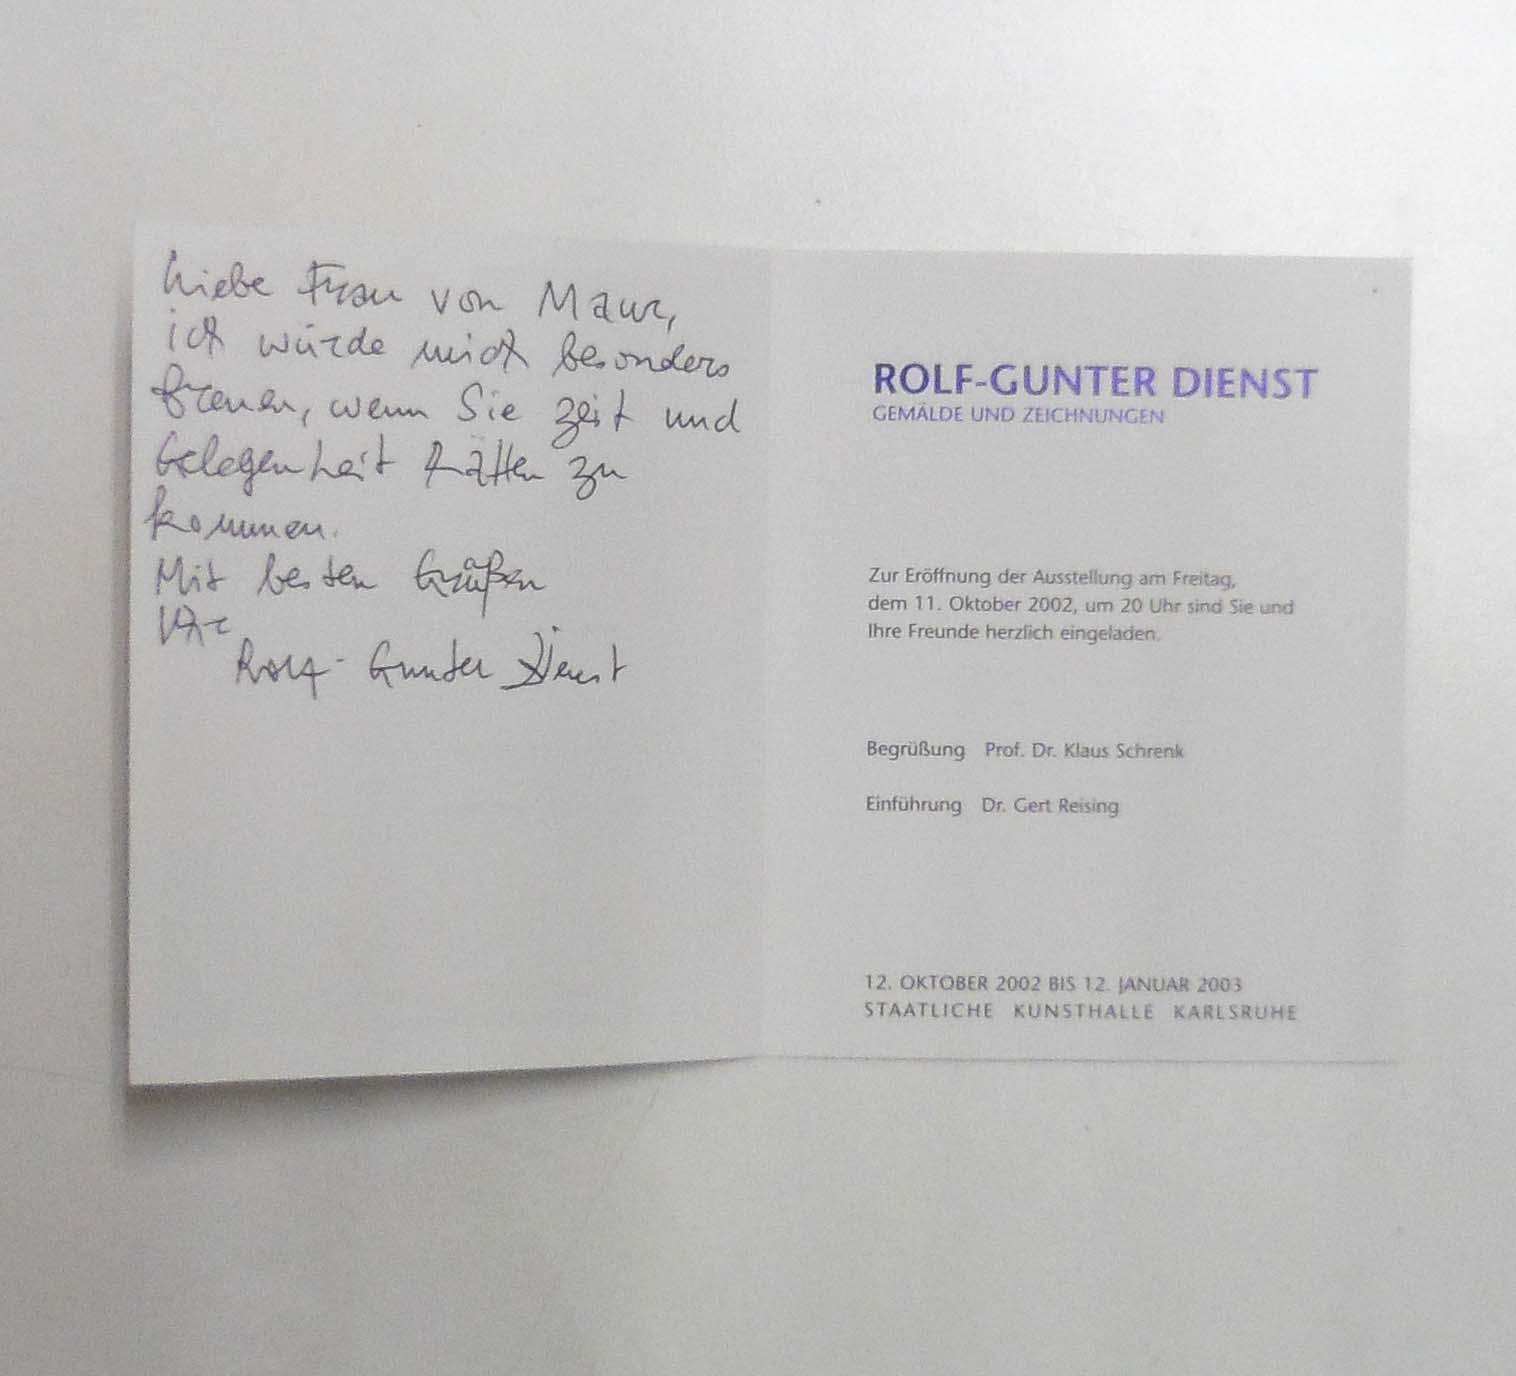 Liebe Frau von Maur,
ich würde mich besonders
freuen, wenn Sie Zeit und
Gelegenheit hätten zu
kommen.
Mit besten Grüßen
Ihr
Rolf-Gunter Dienst
ROLF-GUNTER DIENST
GEMÄLDE UND ZEICHNUNGEN
Zur Eröffnung der Ausstellung am Freitag,
dem 11. Oktober 2002, um 20 Uhr sind Sie und
Ihre Freunde herzlich eingeladen.
Begrüßung Prof. Dr. Klaus Schrenk
Einführung Dr. Gert Reising
12. OKTOBER 2002 BIS 12. JANUAR 2003
STAATLICHE KUNSTHALLE KARLSRUHE